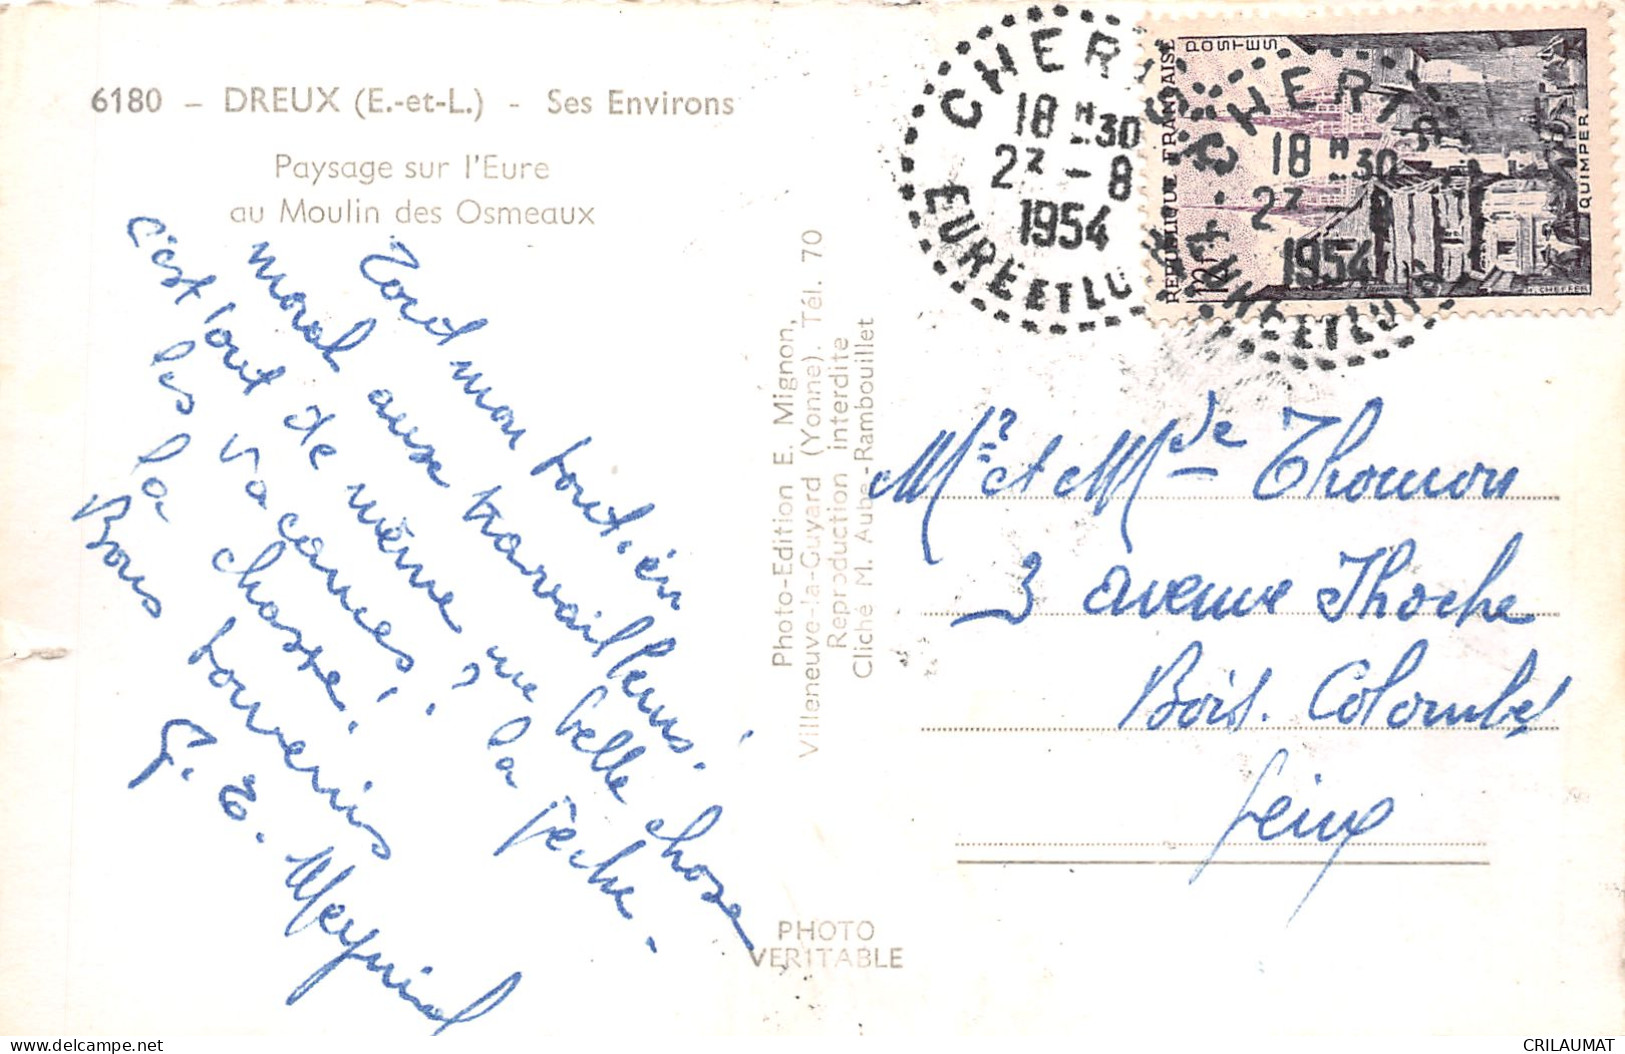 6180 - DREUX (E.-et-L.) - Ses Environs
Paysage sur l'Eure
au Moulin des Osmeaux
Tout mon soutien
moral aux travailleurs!
c'est tout de même une belle chose
les vacances! la pêche.
la chasse!
Bons souvenirs
G. E. Meyniel
Photo-Edition E. Mignon,
Villeneuve-la-Guyard (Yonne). Tél. 70
Reproduction interdite
Cliché M. Aube-Rambouillet
PHOTO
VERITABLE
CHER
18 H 30
23 - 8
1954
EURE ET LOIR
18 H 30
1954
REPUBLIQUE FRANÇAISE
POSTES
QUIMPER
12F
Mr et Mde Thomon
3 avenue Hoche
Bois. Colombes
Seine
CRILAUMAT